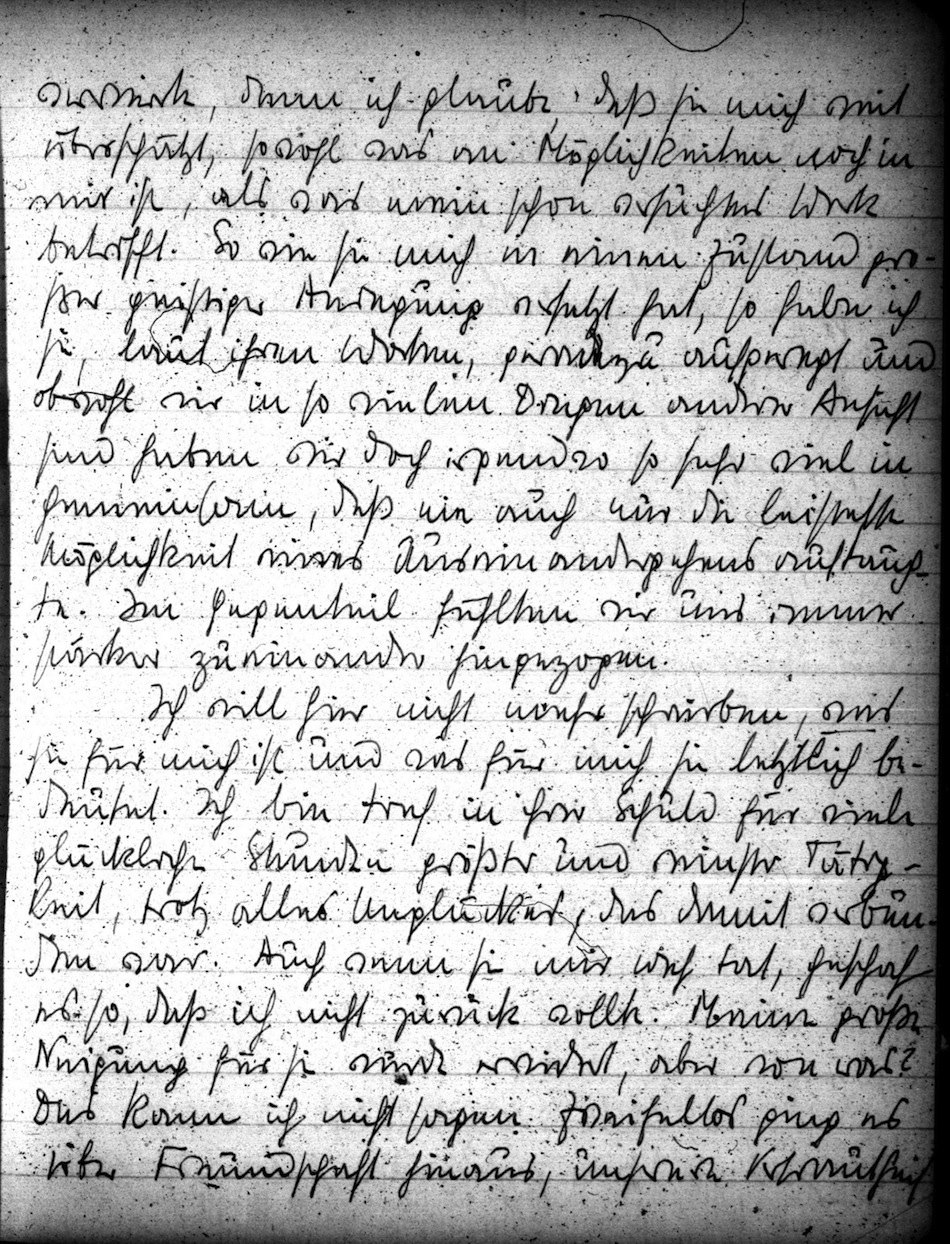 denn ich glaube, daß sie mich weit
überschätzt, sowohl was an Möglichkeiten noch in
mir ist, als was mein schon versuchtes Werk
betrifft. So wie sie mich in einen Zustand gro-
ßer geistiger Anregung versetzt hat, so habe ich
sie, laut ihren Worten, geradezu aufgeregt und
obwohl wir in so vielen Dingen anderer Ansicht
sind haben wir doch irgendwo so sehr viel in
gemeinsam, daß nie auch nur die leiseste
Möglichkeit eines Auseinandergehens auftauch-
te. Im Gegenteil fühlten wir uns immer
stärker zueinander hingezogen.
Ich will hier nicht mehr schreiben, was
sie für mich ist und was für mich sie letztlich be-
deutet. Ich bin tief in ihrer Schuld für viele
glückliche Stunden größter und reinster Tätig-
keit, trotz alles Unglückes, das damit verbun-
den war. Auch wenn sie mir weh tat, geschah
es so, daß ich nicht zurück wollte. Meine große
Neigung für sie wurde erwidert, aber von was?
Das kann ich nicht sagen. Zweifellos ging es
über Freundschaft hinaus, unsere Vertrautheit